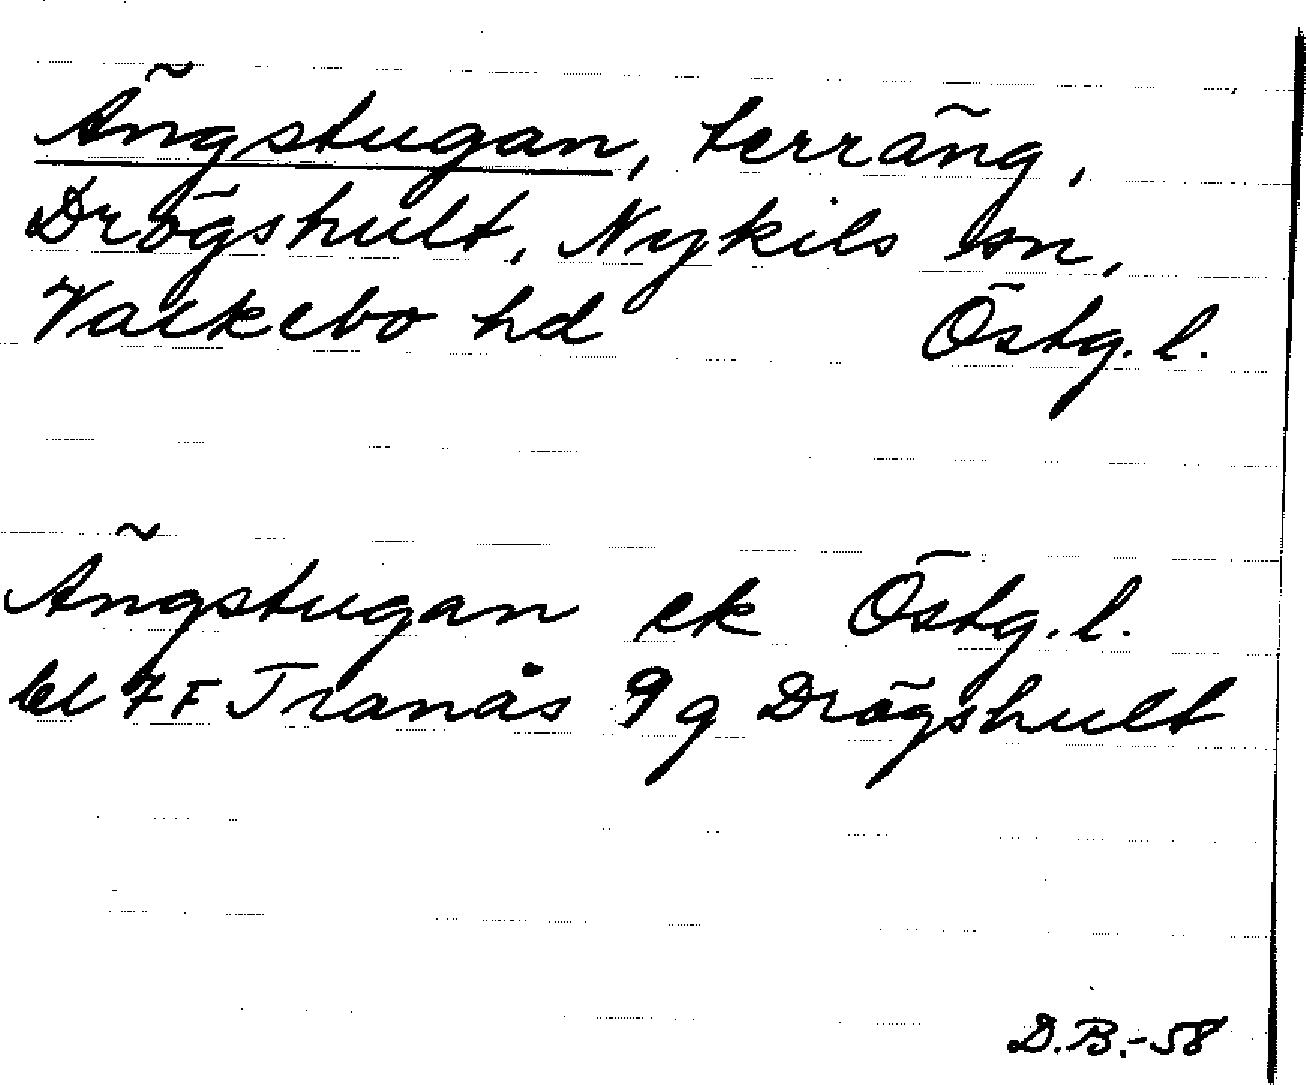 Ängstugan, terräng,
Drögshult, Nykils sn,
Valkebo hd Östg. l.
Ängstugan ek Östg. l.
bl 7 F Tranås 9 g Drögshult
D.B.-58